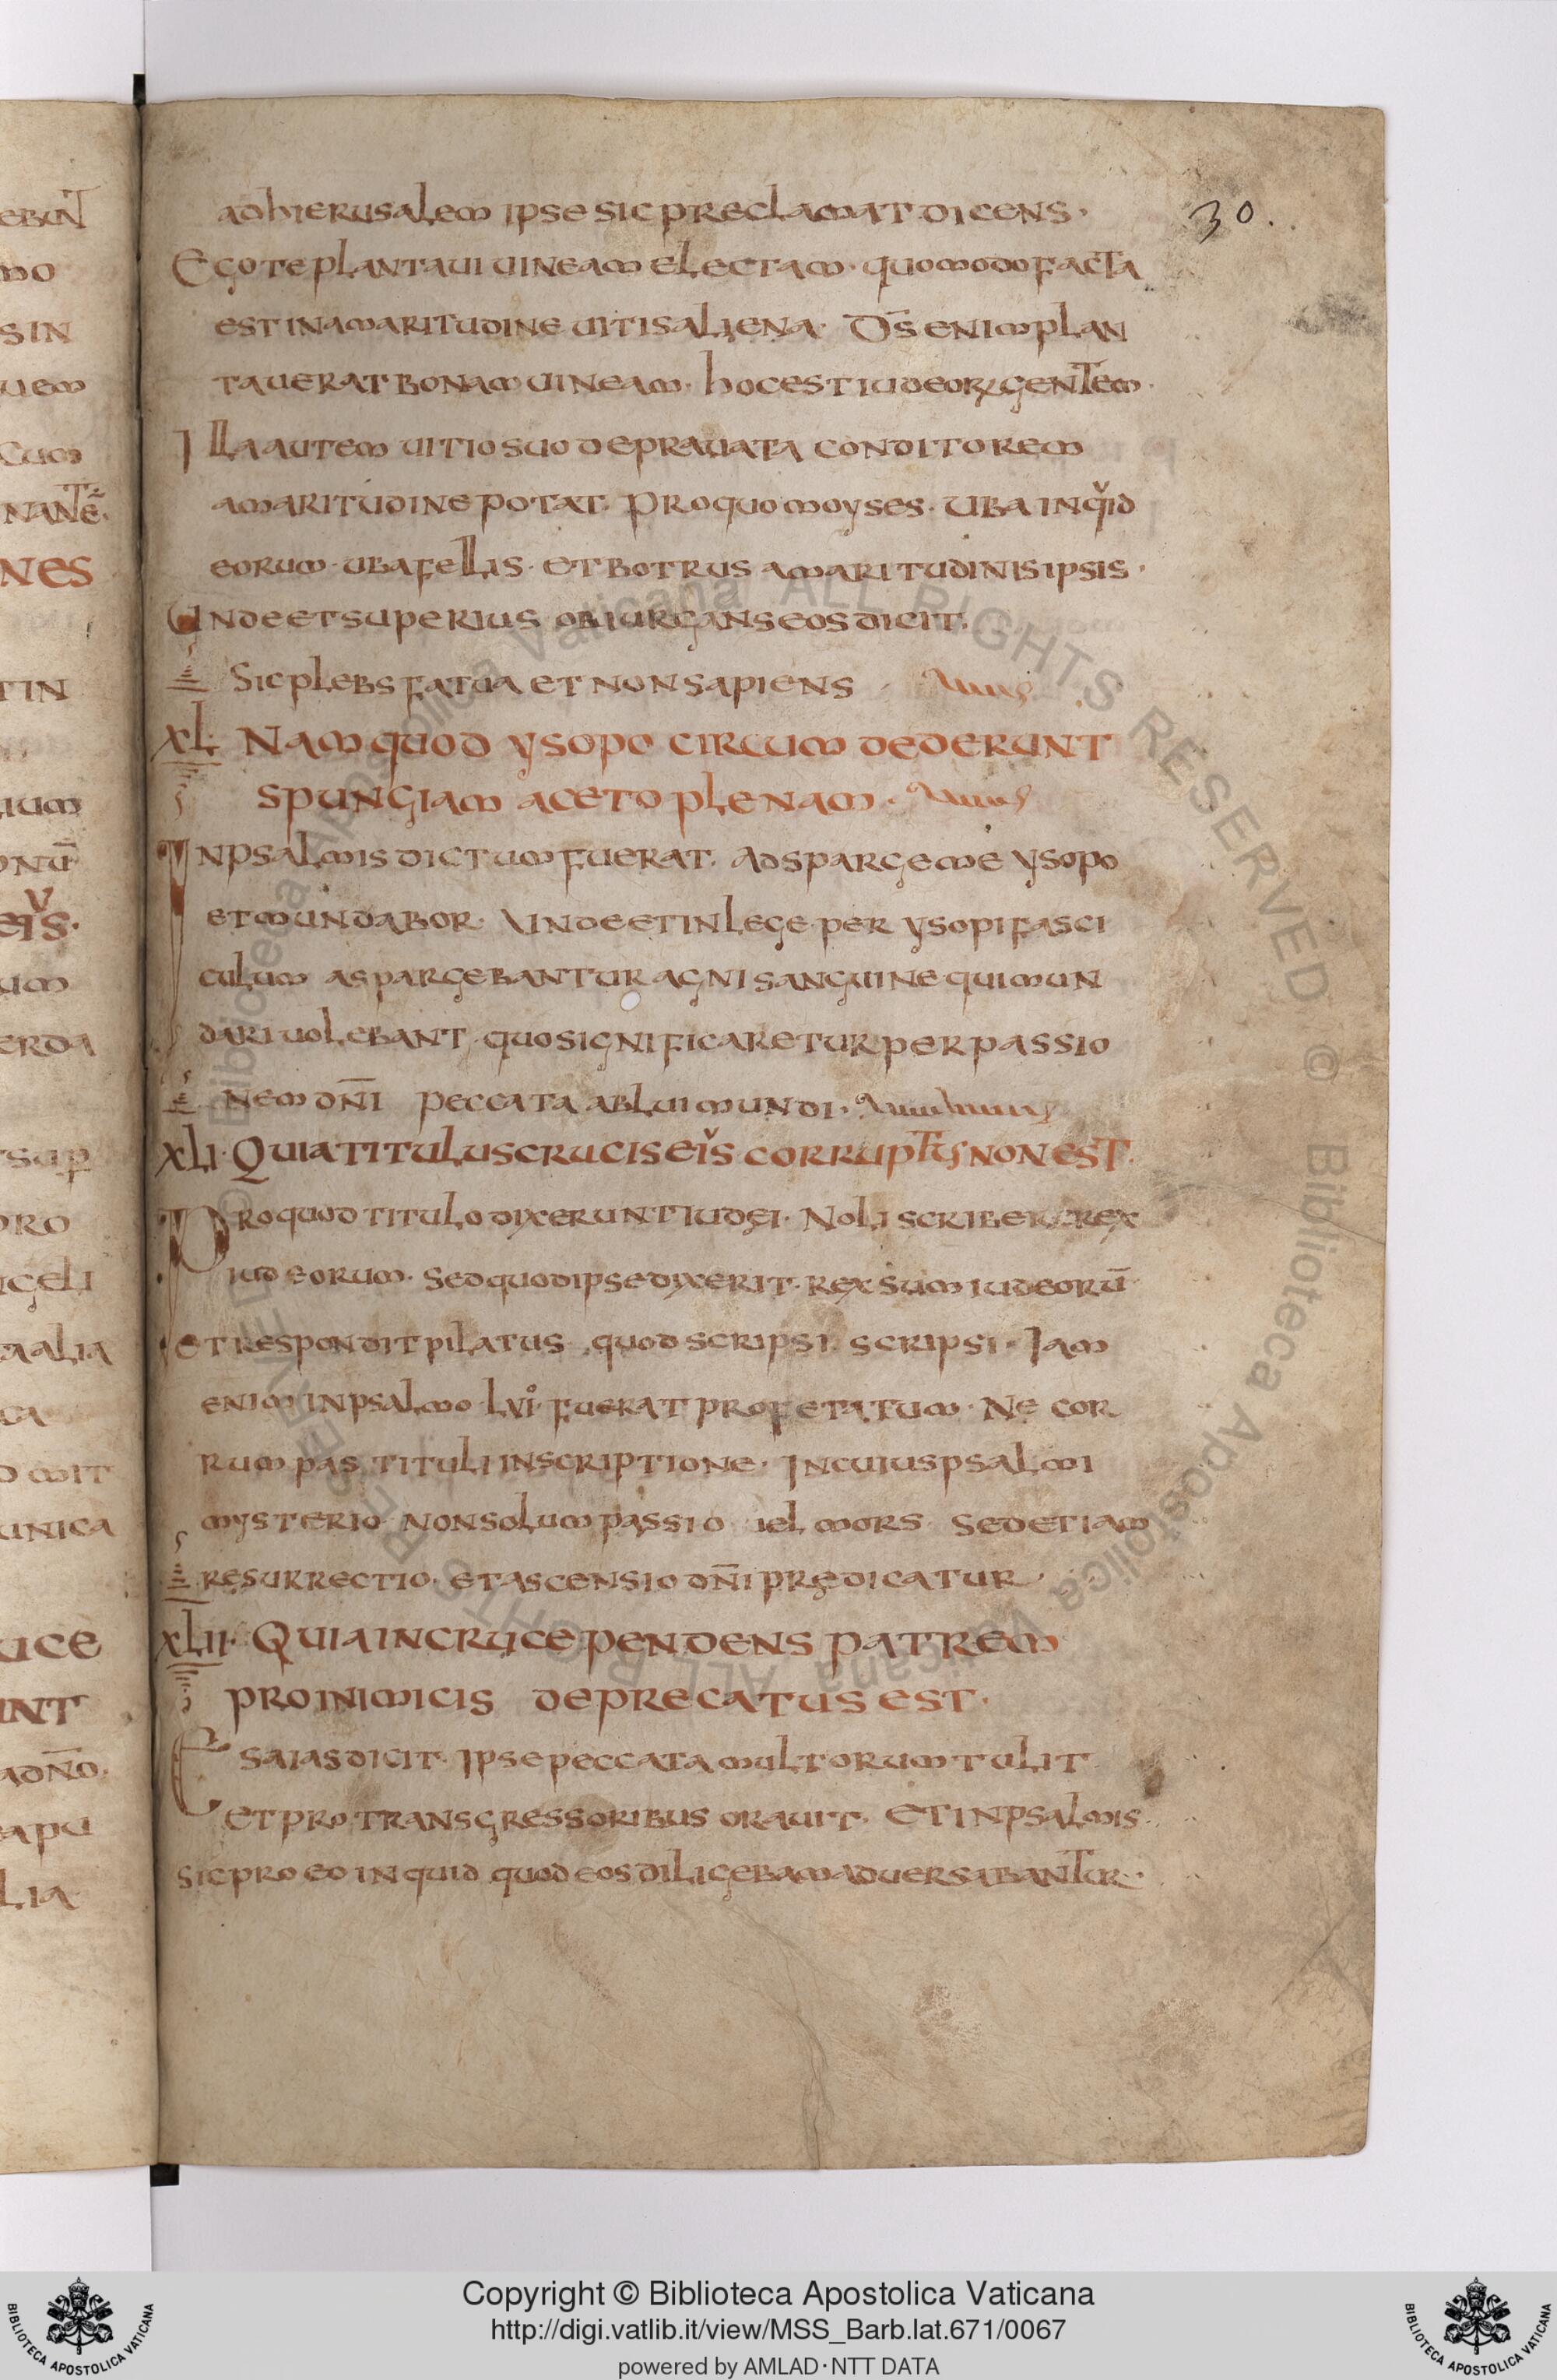 30.
ad hierusalem ipse sic preclamat dicens·
Ego te plantaui uineam electam· quomodo facta
est in amaritudine uitis aliena· D̅s enim plan
tauerat bonam uineam· hoc est iudeorꝝ gentem·
Illa autem uitio suo deprauata conditorem
amaritudine potat· Pro quo moyses· Uba inqͮid
eorum· uba fellis· et botrus amaritudinis ipsis·
Unde et superius obiurgans eos dicit·
Sic plebs fatua et non sapiens
XL· Nam quod ysopo circumdederunt
spungiam aceto plenam·
In psalmis dictum fuerat· Adsparge me ysopo
et mundabor· Unde et in lege per ysopi fasci
culum aspargebantur agni sanguine qui mun
dari uolebant· quo significaretur per passio
nem dn̅i peccata ablui mundi·
XLI· Quia titulus crucis eiͮs corruptus non est·
Pro quod titulo dixerunt iudęi· Noli scribere rex
iudeorum· sed quod ipse dixerit· rex sum iudeoru̅
et respondit pilatus· quod scripsi scripsi· Iam
enim in psalmo lvıͦ· fuerat profetatum· Ne cor
rumpas tituli inscriptione· In cuius psalmi
mysterio non solum passio uel mors sed etiam
resurrectio· et ascensio dn̅i prędicatur·
XLII· Quia in cruce pendens patrem
pro inimicis deprecatus est·
Esaias dicit· Ipse peccata multorum tulit
et pro transgressoribus orauit· Et in psalmis·
sic pro eo inquid quod eos diligebam aduersabantur·
ebunt
mo
sin
uem
Cum
nes
tin
um
erda
sup
pro
geli
alia
ca
mit
unica
uce
unt
apu
lia
Copyright © Biblioteca Apostolica Vaticana
http://digi.vatlib.it/view/MSS_Barb.lat.671/0067
powered by AMLAD·NTT DATA
BIBLIOTECA APOSTOLICA VATICANA
BIBLIOTECA APOSTOLICA VATICANA
© Biblioteca Apostolica Vaticana ALL RIGHTS RESERVED © Biblioteca Apostolica Vaticana ALL RIGHTS RESERVED